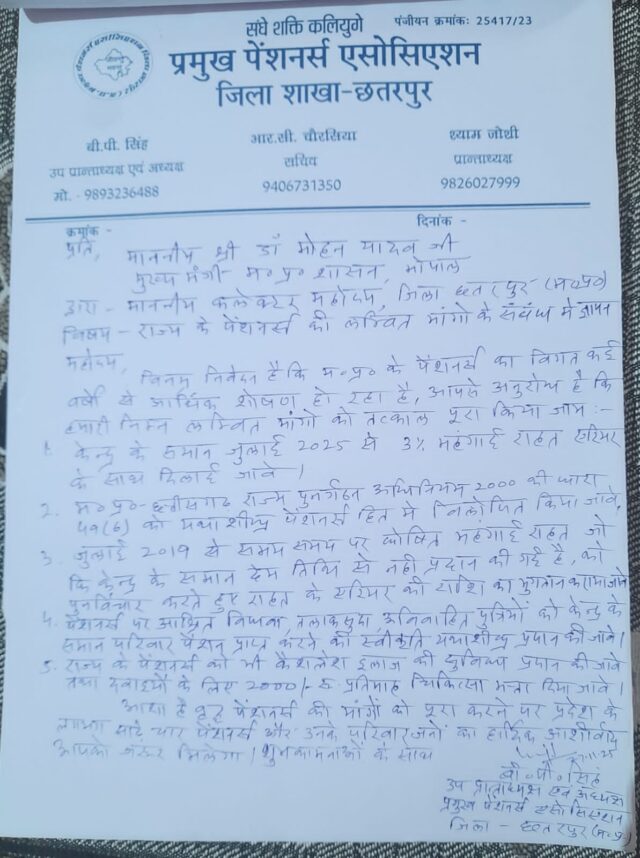 संघे शक्ति कलियुगे
पंजीयन क्रमांक: 25417/23
प्रमुख पेंशनर्स एसोसिएशन
जिला शाखा-छतरपुर
बी.पी. सिंह
उप प्रान्ताध्यक्ष एवं अध्यक्ष
मो. - 9893236488
आर.सी. चौरसिया
सचिव
9406731350
श्याम जोशी
प्रान्ताध्यक्ष
9826027999
क्रमांक -
दिनांक -
प्रति,
माननीय श्री डॉ मोहन यादव जी
मुख्य मंत्री म०प्र० शासन, भोपाल
द्वारा - माननीय कलेक्टर महोदय, जिला छतरपुर (म०प्र०)
विषय - राज्य के पेंशनर्स की लम्बित मांगो के संबंध में ज्ञापन
महोदय,
विनम्र निवेदन है कि म०प्र० के पेंशनर्स का विगत कई
वर्षों से आर्थिक शोषण हो रहा है, आपसे अनुरोध है कि
हमारी निम्न लम्बित मांगो को तत्काल पूरा किया जाय :-
1. केन्द्र के समान जुलाई 2025 से 3% महंगाई राहत एरियर
के साथ दिलाई जावे।
2. म०प्र०-छत्तीसगढ़ राज्य पुनर्गठन अधिनियम 2000 की धारा
49(6) को यथाशीघ्र पेंशनर्स हित में विलोपित किया जावे,
3. जुलाई 2019 से समय समय पर घोषित महंगाई राहत जो
कि केन्द्र के समान देय तिथि से नही प्रदान की गई है, को
पुनर्विचार करते हुए राहत के एरियर की राशि का भुगतान कराया जावे
4. पेंशनर्स पर आश्रित विधवा, तलाकसुदा अविवाहित पुत्रियों को केन्द्र के
समान परिवार पेंशन प्राप्त करने की स्वीकृति यथाशीघ्र प्रदान की जावे।
5. राज्य के पेंशनर्स को भी कैशलेश इलाज की सुविधा प्रदान की जावे
तथा दवाइयों के लिए 2000/- रु प्रतिमाह चिकित्सा भत्ता दिया जावे।
आशा है वृद्ध पेंशनर्स की मांगों को पूरा करने पर प्रदेश के
लगभग साढे चार पेंशनर्स और उनके परिवारजनों का हार्दिक आशीर्वाद
आपको जरूर मिलेगा। शुभकामनाओं के साथ
बी. पी. सिंह
उप प्रांताध्यक्ष एवं अध्यक्ष
प्रमुख पेंशनर्स एसोसिएशन
जिला - छतरपुर (म.प्र)